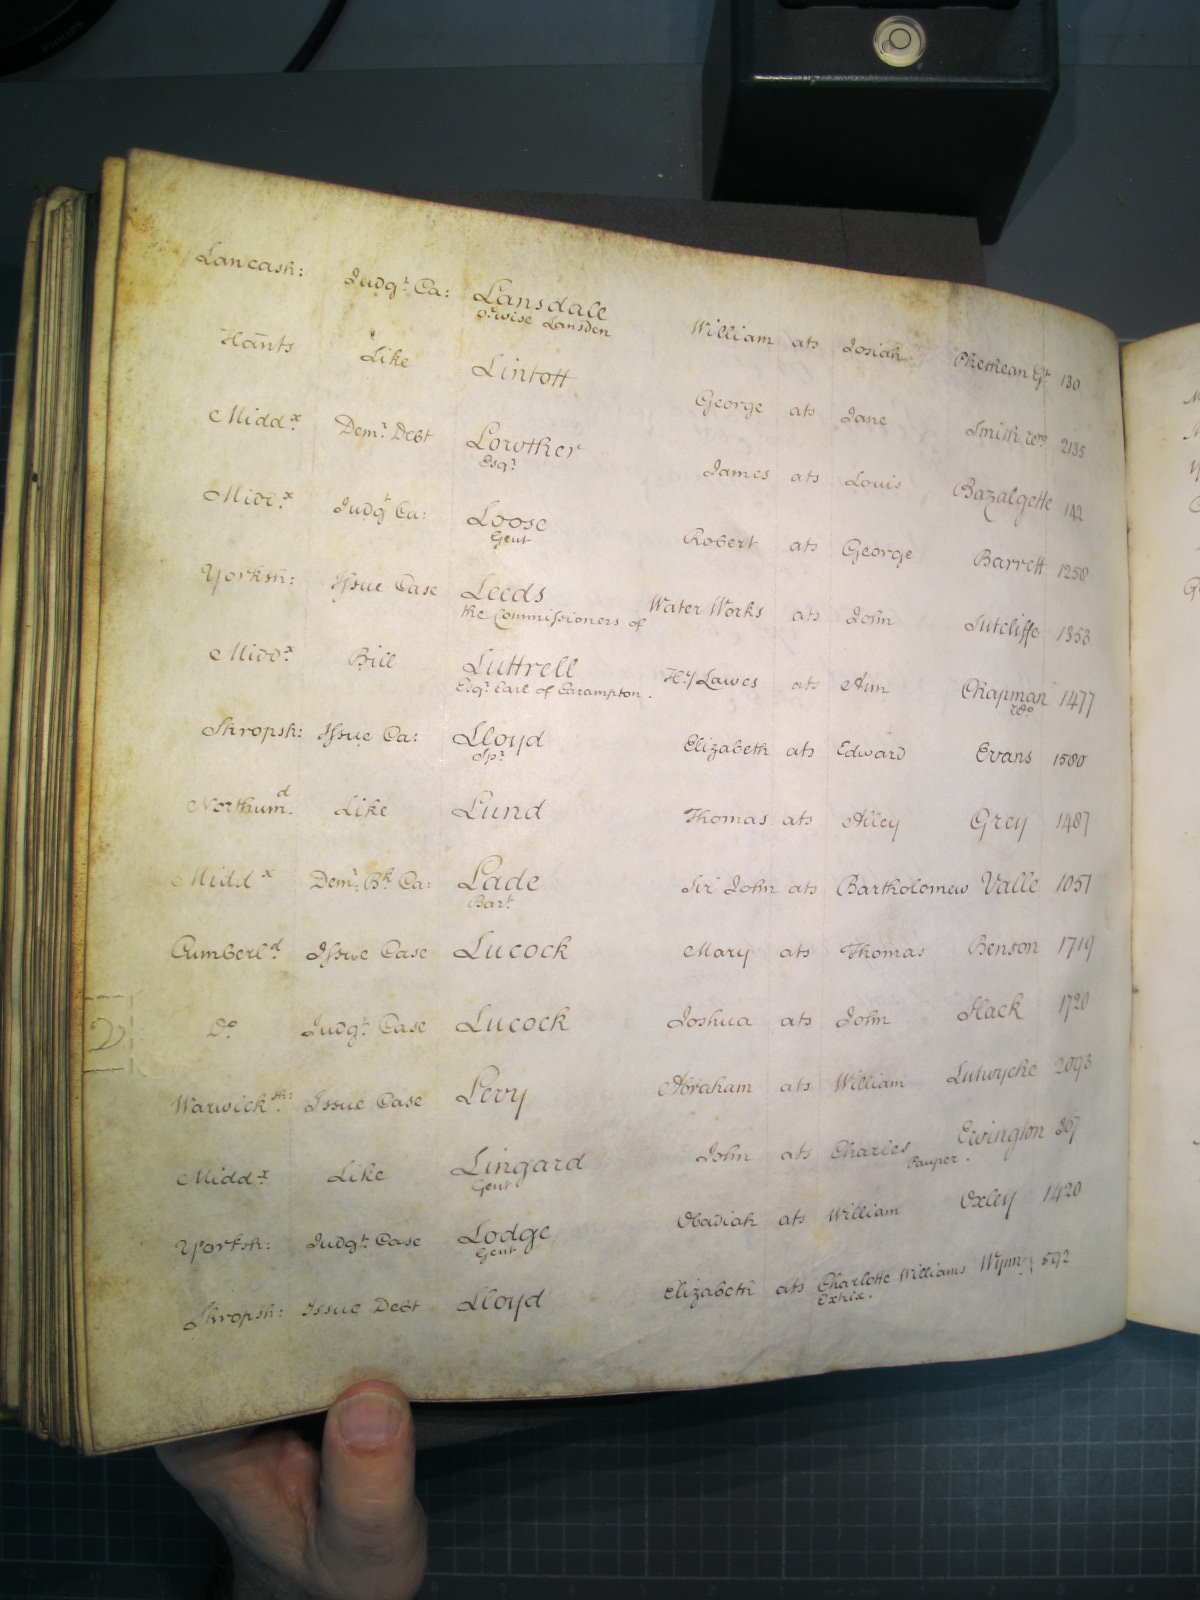 Lancash: Judgt Ca: Lansdale William ats Josiah Phethean Gt 130
o:wise Lansden
Hants Like Lintott George ats Jane Smith wo 2135
Middx Demr Debt Lowther James ats Louis Bazalgette 142
Esqr
Middx Judgt Ca: Loose Robert ats George Barrett 1258
Gent
Yorksh: Issue Case Leeds Water Works ats John Sutcliffe 1353
the Commissioners of
Middx Bill Luttrell Hy Lawes ats Ann Chapman 1477
Esqr Earl of Carampton. Wo
Shropsh: Issue Ca: Lloyd Elizabeth ats Edward Evans 1580
Spr
Northumd. Like Lund Thomas ats Alley Grey 1487
Middx Demr Bk Ca: Lade Sir John ats Bartholomew Valle 1051
Bart
Cumberld Issue Case Lucock Mary ats Thomas Benson 1719
Do Judgt Case Lucock Joshua ats John Slack 1720
Warwicksh: Issue Case Levy Abraham ats William Lutwyche 2093
Middx Like Lingard John ats Charles Ewington 307
Gent Pauper.
Yorksh: Judgt Case Lodge Obadiah ats William Oxley 1420
Gent
Shropsh: Issue Debt Lloyd Elizabeth ats Charlotte Williams Wynn 592
Extrix.